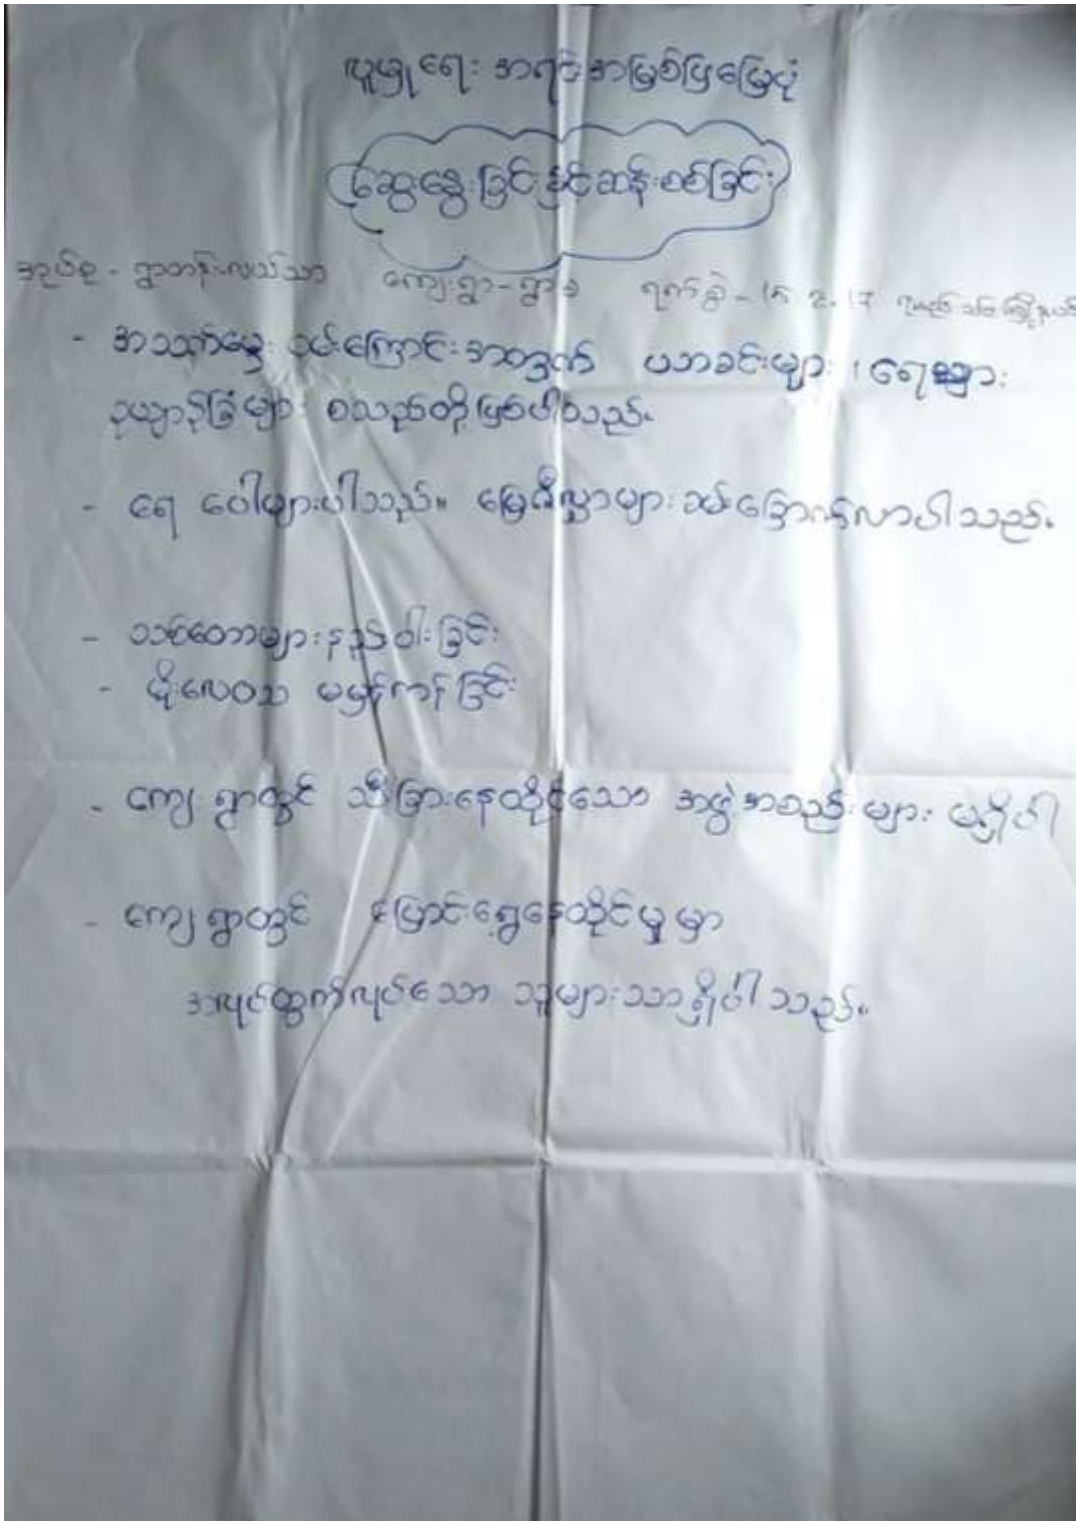 လူမှုရေး အရင်းအမြစ်ပြမြေပုံ
ဆွေးနွေးခြင်းနှင့်ဆန်းစစ်ခြင်း
အုပ်စု - ရွာတန်းလယ်သာ ကျေးရွာ - ရက်စွဲ -
- အသက်မွေးဝမ်းကြောင်းအတွက် ပဘခင်းများ ၊ ရေ
ဥယျာဉ်ခြံများ စသည်တို့ဖြစ်ပါသည်။
- ရေ ပေါများပါသည်။ မြေဩဇာများခမ်းခြောက်လာပါသည်။
- သစ်တောများနည်းပါးခြင်း
- မိုးလေဝသ မမှန်ကန်ခြင်း
- ကျေးရွာတွင် သီးခြားနေထိုင်သော အဖွဲ့အစည်းများ မရှိပါ
- ကျေးရွာတွင် ပြောင်းရွှေ့နေထိုင်မှုမှာ
အလုပ်ထွက်လုပ်သော သူများသာရှိပါသည်။